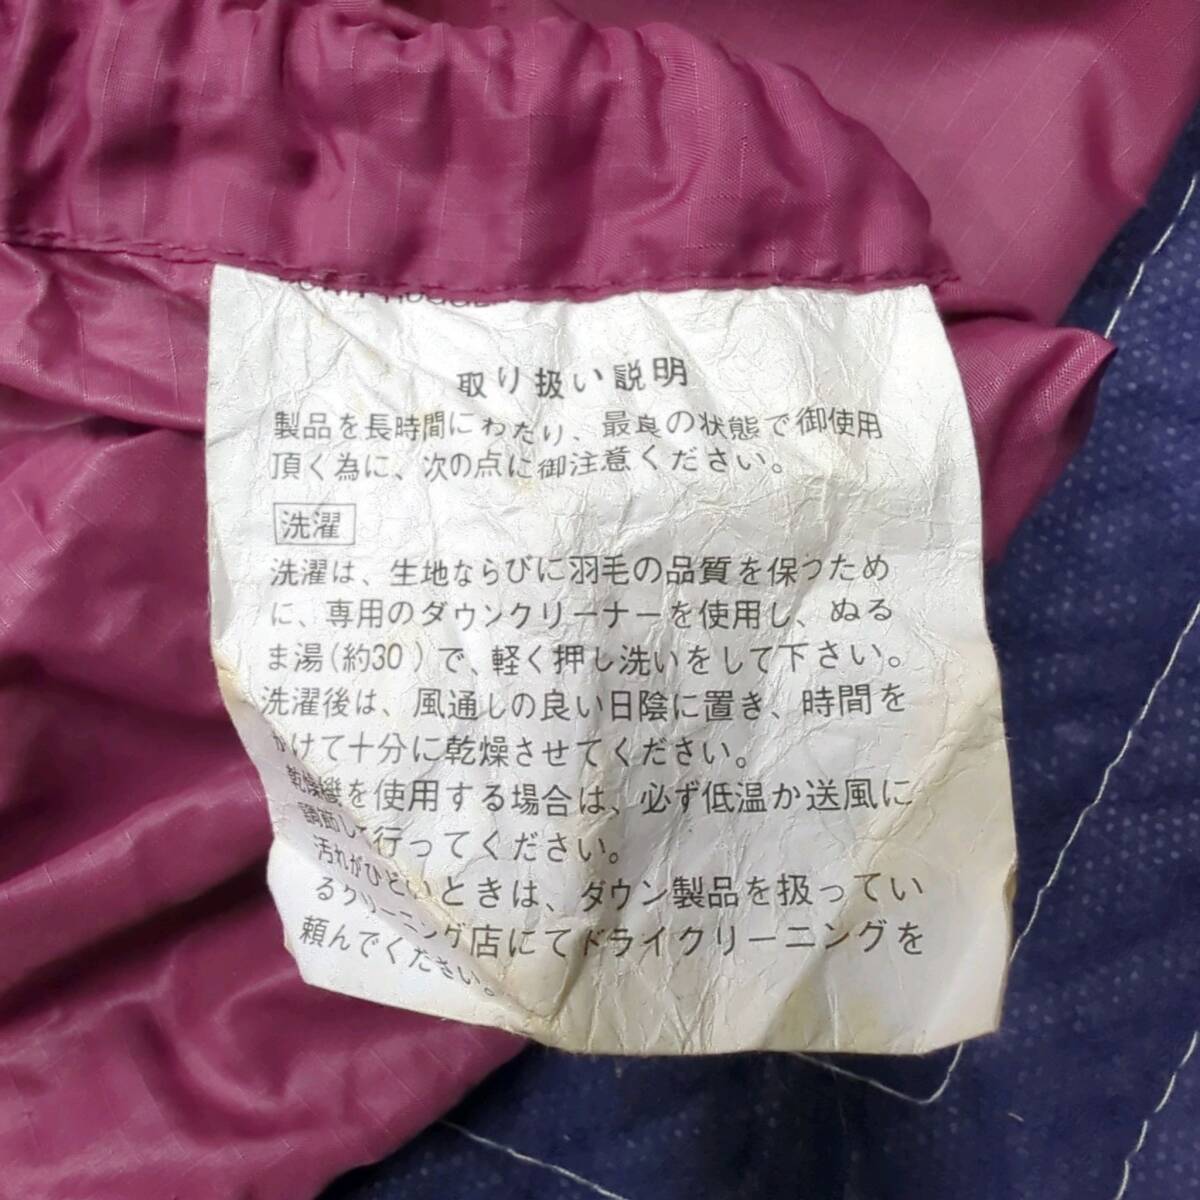 取り扱い説明
製品を長時間にわたり、最良の状態で御使用
頂く為に、次の点に御注意ください。
洗濯
洗濯は、生地ならびに羽毛の品質を保つため
に、専用のダウンクリーナーを使用し、ぬる
ま湯(約30 )で、軽く押し洗いをして下さい。
洗濯後は、風通しの良い日陰に置き、時間を
かけて十分に乾燥させてください。
乾燥機を使用する場合は、必ず低温か送風に
調節して行ってください。
汚れがひどいときは、ダウン製品を扱ってい
るクリーニング店にてドライクリーニングを
頼んでください。